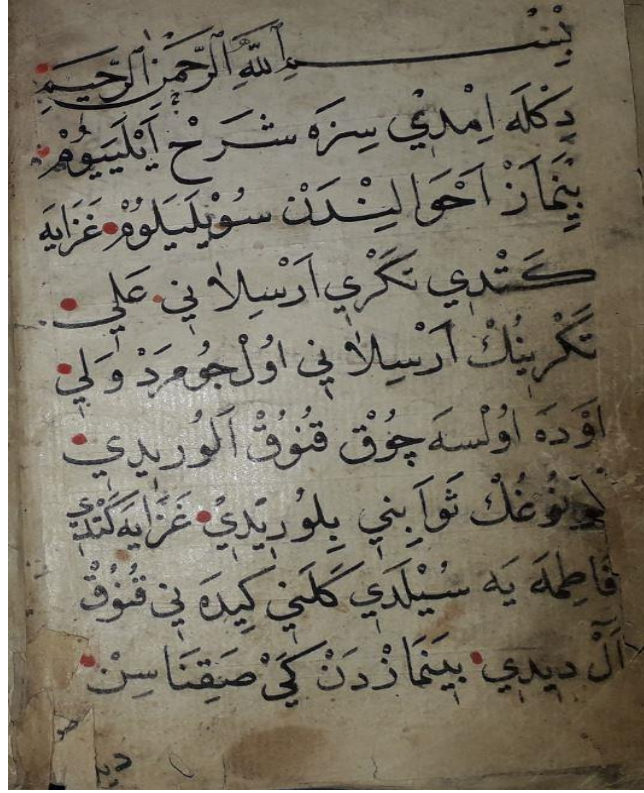 بِسْمِ اللّٰهِ الرَّحْمٰنِ الرَّحِيمِ
دِكْلَه اِمْدِيْ سِزَه شَرَحْ اَيْلَيَيُوْمْ
بِيَنَمَازْ اَحْوَالِنْدَنْ سُوْيْلَيَلُوْمْ غَزَايَه
كَتْدِي تَكْرِي اَرْسِلَا نِي عَلِي
تَكْرِينُكْ اَرْسِلَا نِي اُولْ جُومَرَدْ وَلِي
اَوْدَه اُولْسَه چُوْقْ قُنُوْقْ اَلُورِيدِي
قُونُوغُكْ ثَوَابِنِي بِلُورِيْدِيْ غَزَايَه كَتْدِي
فَاطِمَه يَه سُيْلَدِي كَلَنِي كِيدَه نِي قُنُوْقْ
اَلْ دِيدِي بِيَنَمَازْ دَنْ كَيْ صَقِنَاسِنْ
ديدي